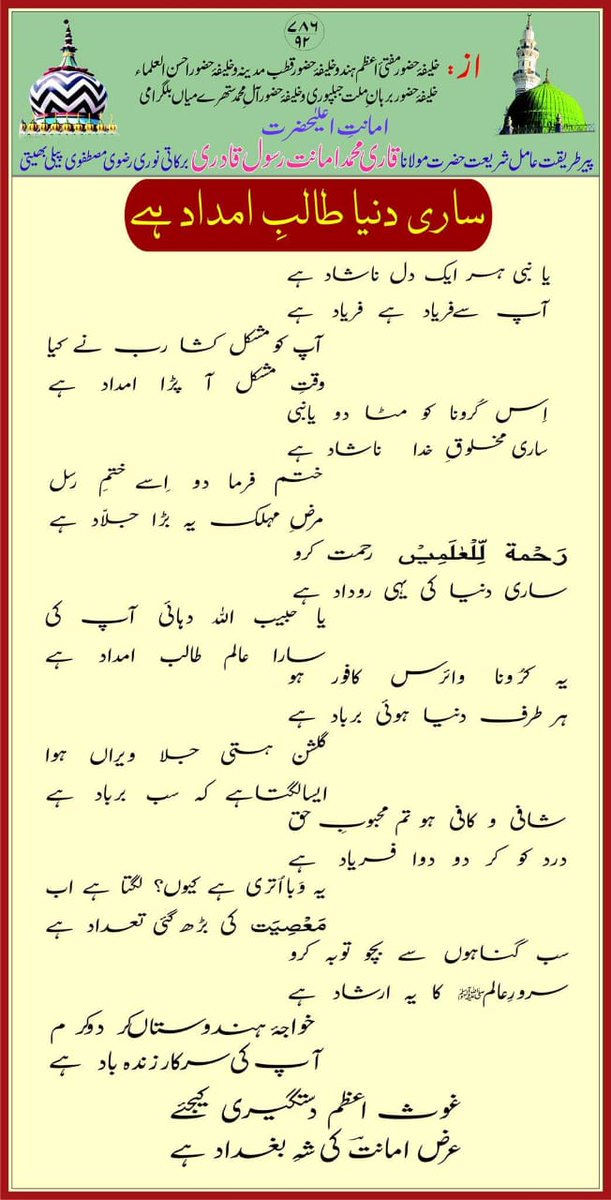 ۷۸۶
۹۲
از: خلیفۂ حضور مفتیٔ اعظم ہند و خلیفۂ حضور قطب مدینہ و خلیفۂ حضور احسن العلماء
خلیفۂ حضور برہان ملت جبلپوری و خلیفۂ حضور آل محمد ستھرے میاں بلگرامی
امانت اعلیٰحضرت
پیر طریقت عامل شریعت حضرت مولانا قاری محمد امانت رسول قادری برکاتی نوری رضوی مصطفوی پیلی بھیتی
ساری دنیا طالبِ امداد ہے
یا نبی ہر ایک دل ناشاد ہے
آپ سے فریاد ہے فریاد ہے
آپ کو مشکل کشا رب نے کیا
وقتِ مشکل آ پڑا امداد ہے
اِس کرونا کو مٹا دو یا نبی
ساری مخلوقِ خدا ناشاد ہے
ختم فرما دو اِسے ختمِ رسل
مرضِ مہلک یہ بڑا جلّاد ہے
رَحْمة لِّلْعٰلَمِيْں رحمت کرو
ساری دنیا کی یہی روداد ہے
یا حبیب اللہ دہائی آپ کی
سارا عالم طالب امداد ہے
یہ کرُونا وائرَس کافور ہو
ہر طرف دنیا ہوئی برباد ہے
گلشن ہستی جلا ویراں ہوا
ایسا لگتا ہے کہ سب برباد ہے
شافی و کافی ہو تم محبوبِ حق
درد کو کر دو دوا فریاد ہے
یہ وَبا اُتری ہے کیوں؟ لگتا ہے اب
مَعْصِیَت کی بڑھ گئی تعداد ہے
سب گناہوں سے بچو توبہ کرو
سرورِ عالم ﷺ کا یہ ارشاد ہے
خواجۂ ہندوستاں کر دو کرم
آپ کی سرکار زندہ باد ہے
غوث اعظم دستگیری کیجئے
عرض امانتؔ کی شہِ بغداد ہے